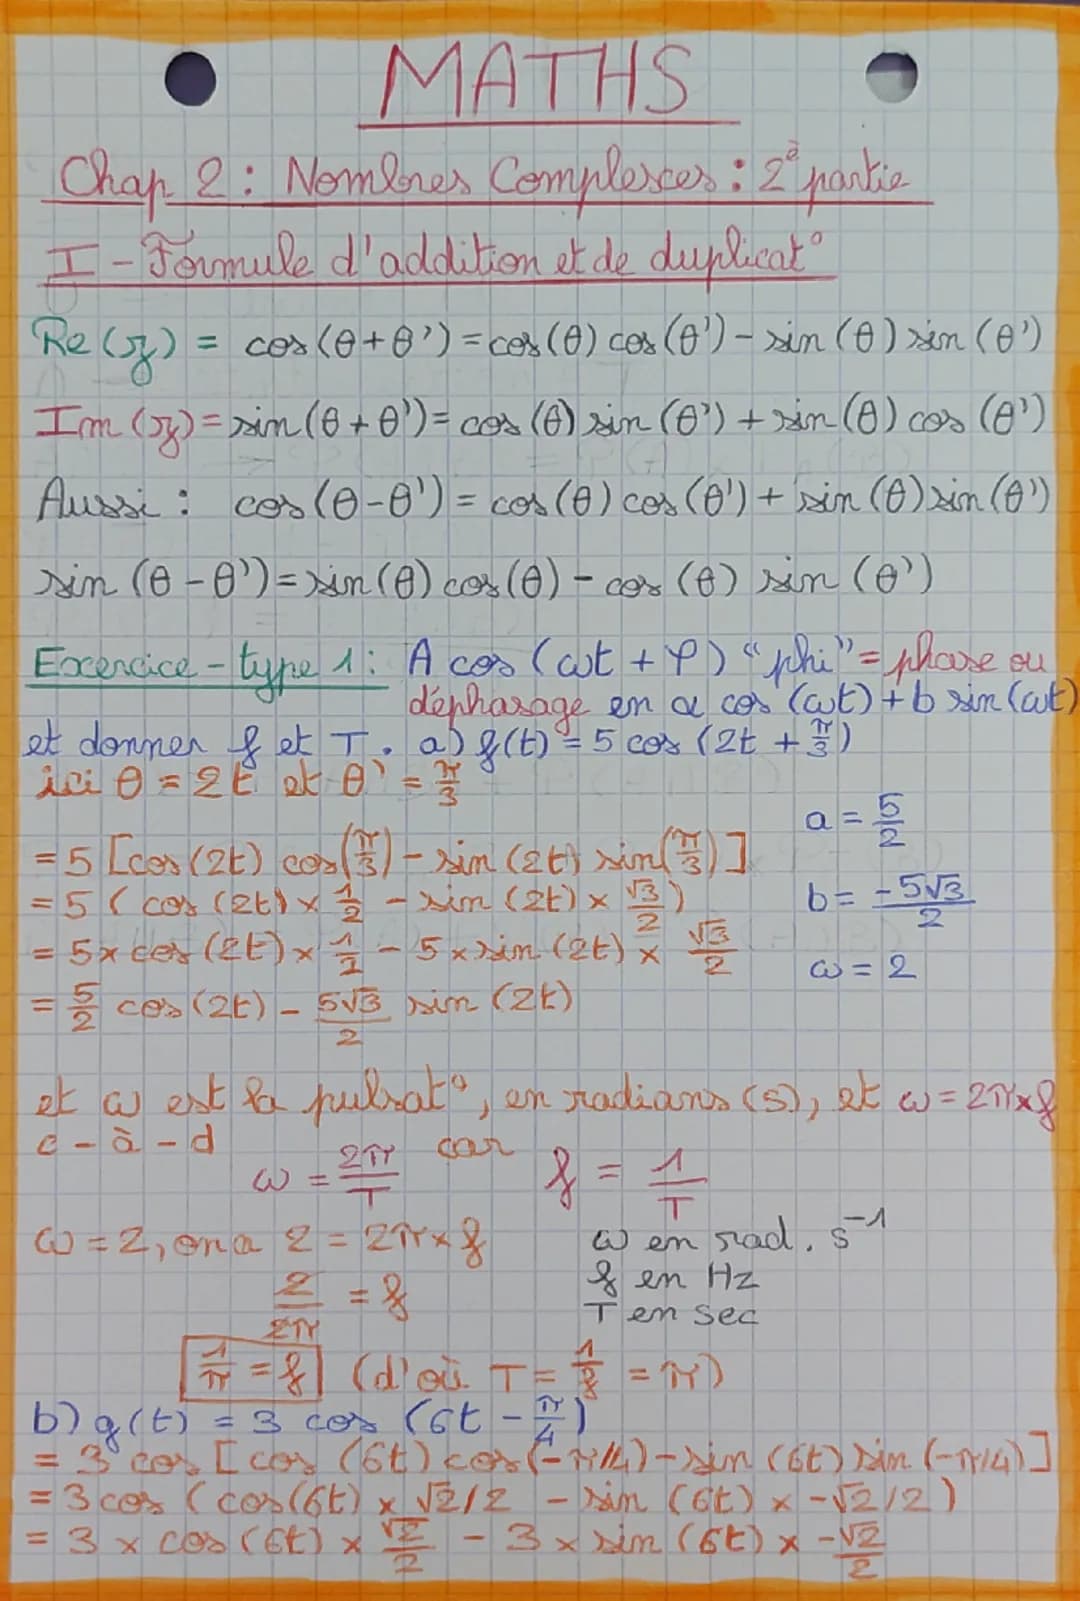 MATHS
Chap 2 : Nombres Complexes : 2è partie
I - Formule d'addition et de duplicat°
Re(z) = cos(θ+θ') = cos(θ) cos(θ') - sin(θ) sin(θ')
Im(z) = sin(θ+θ') = cos(θ) sin(θ') + sin(θ) cos(θ')
Aussi : cos(θ-θ') = cos(θ) cos(θ') + sin(θ) sin(θ')
sin(θ-θ') = sin(θ) cos(θ) - cos(θ) sin(θ')
Exercice-type 1 : A cos(ωt + φ) "phi" = phase ou
déphasage en a cos(ωt) + b sin(ωt)
et donner f et T. a) f(t) = 5 cos(2t + π/3)
ici θ = 2t et θ' = π/3
a = 5/2
= 5 [cos(2t) cos(π/3) - sin(2t) sin(π/3)]
= 5 (cos(2t) × 1/2 - sin(2t) × √3/2)
b = -5√3/2
= 5 × cos(2t) × 1/2 - 5 × sin(2t) × √3/2
ω = 2
= 5/2 cos(2t) - 5√3/2 sin(2t)
et ω est la pulsat°, en radians (s), et ω = 2π×f
c-à-d ω = 2π/T car f = 1/T
ω = 2, on a 2 = 2π×f
2/2π = f
1/π = f (d'où T = 1/f = π)
ω en rad. s⁻¹
f en Hz
T en sec
b) g(t) = 3 cos(6t - π/4)
= 3 cos [cos(6t) cos(-π/4) - sin(6t) sin(-π/4)]
= 3 cos (cos(6t) × √2/2 - sin(6t) × -√2/2)
= 3 × cos(6t) × √2/2 - 3 × sin(6t) × -√2/2